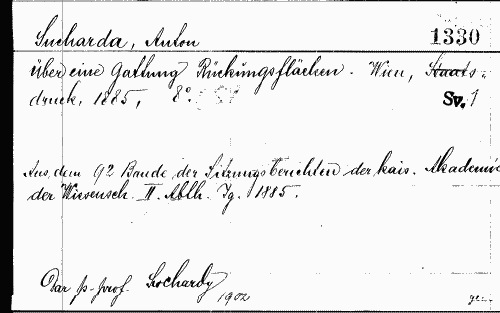 Sucharda, Anton
1330
über eine Gattung Rückungsflächen. Wien, Staats-
druck, 1885, 8°.
Sv. 1
Aus dem 92 Bande der Sitzungsberichten der kais. Akademie
der Wissensch. II. Abth. Jg. 1885.
Dar p. prof. Sochardy
1902